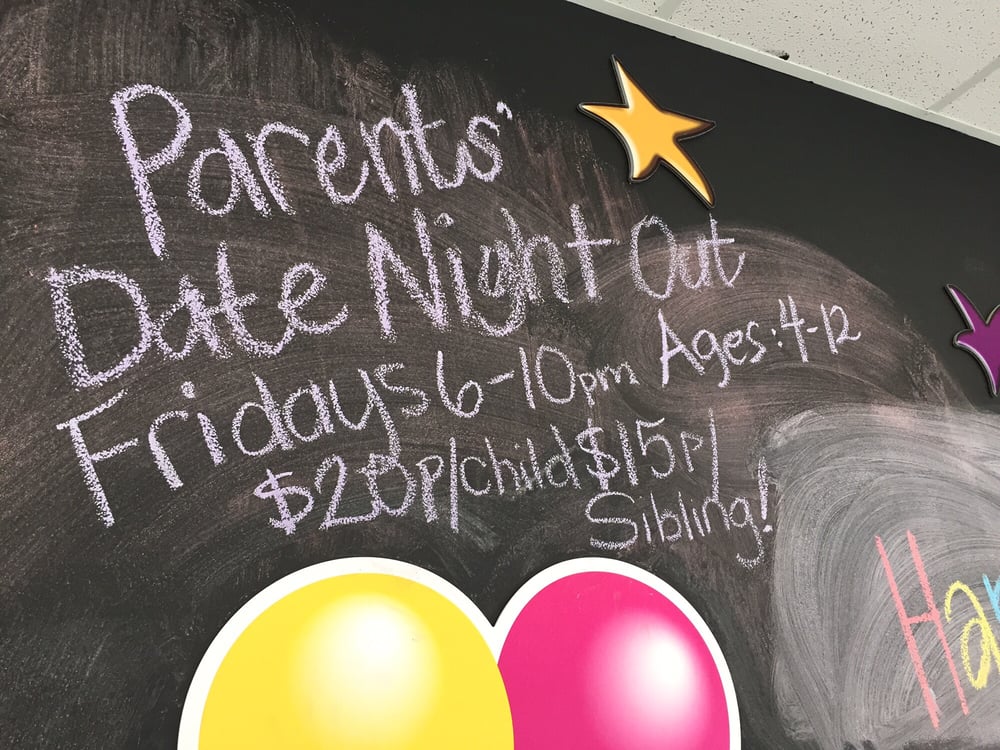 Parents'
Date Night Out
Fridays 6-10pm Ages: 4-12
$20 p/child $15 p/
Sibling!
Ha